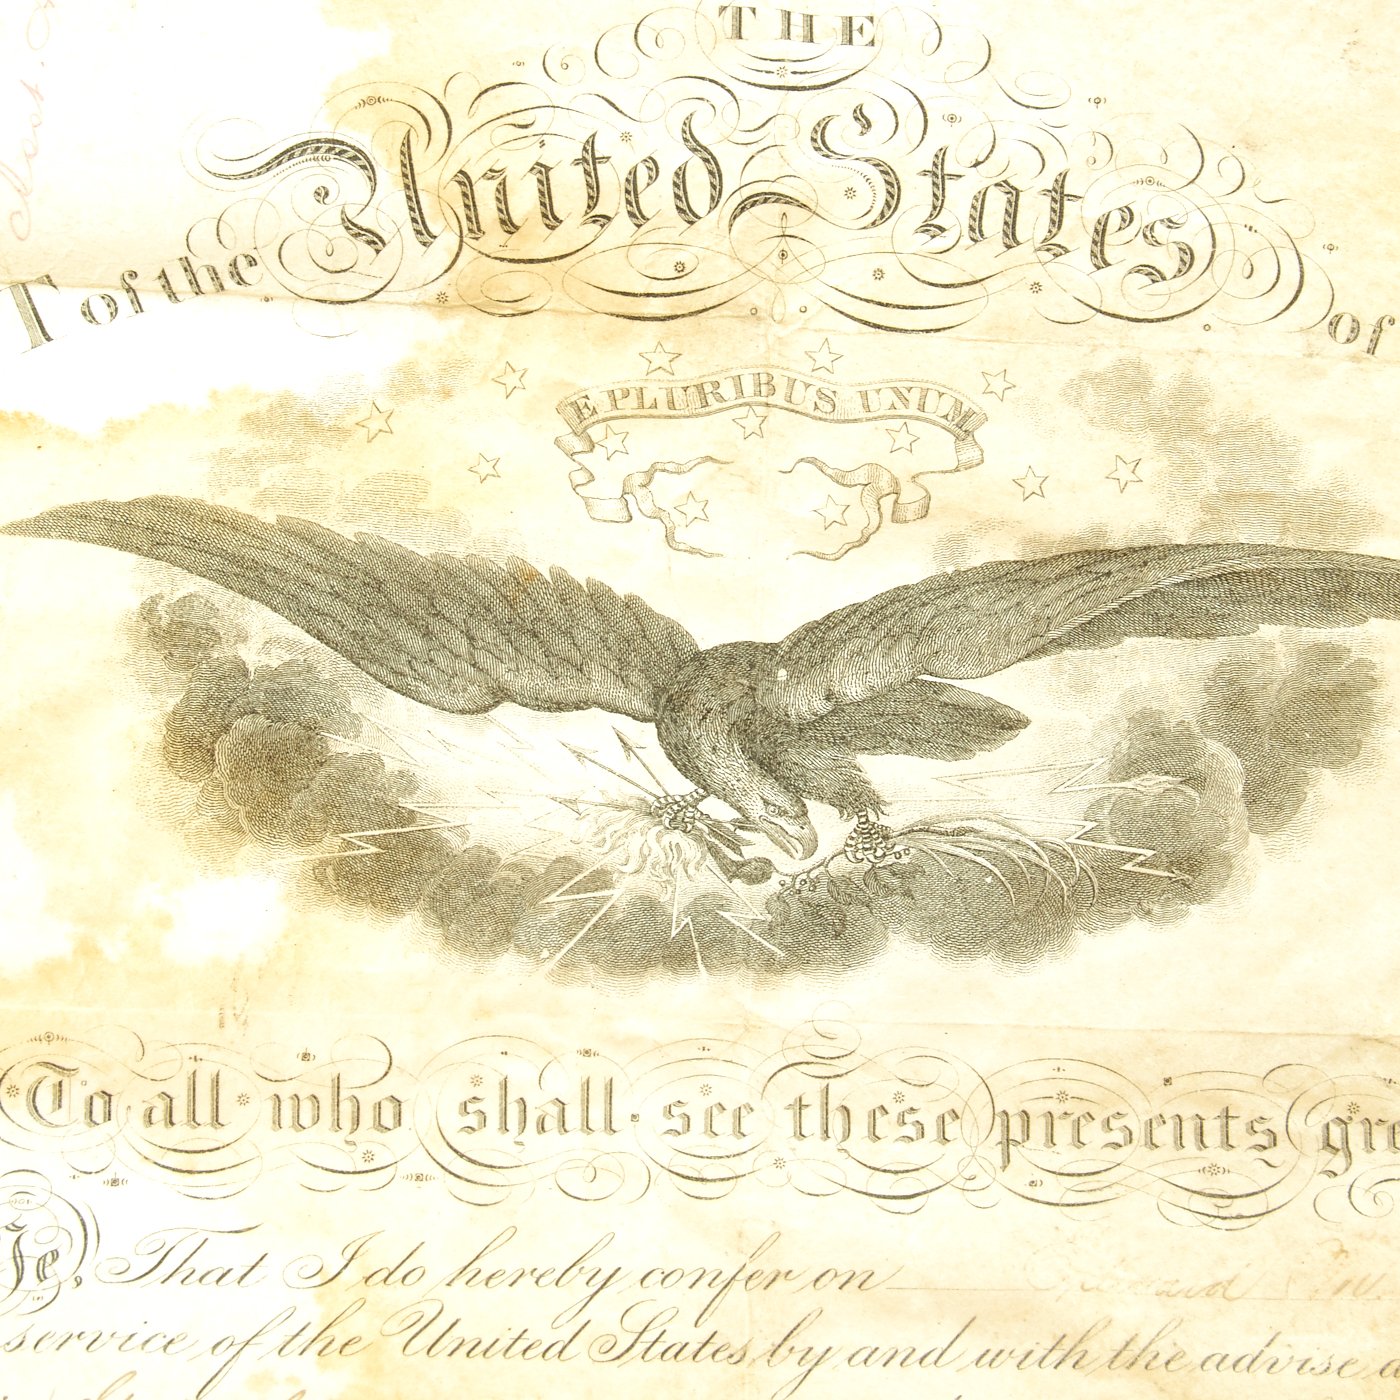 THE
T of the United States of
E PLURIBUS UNUM
To all who shall see these presents gre
Ye, That I do hereby confer on
service of the United States by and with the advise